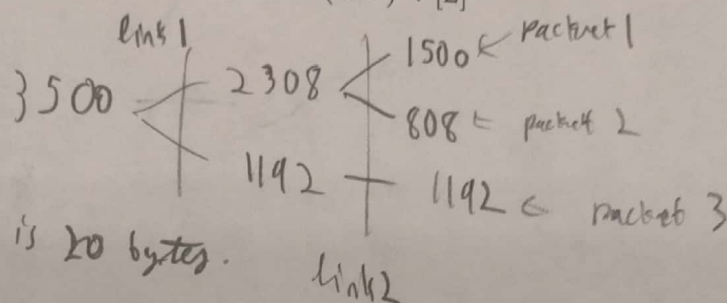 link1
3500
2308
1192
1500 ← packet 1
808 ← packet 2
1192 ← packet 3
is 20 bytes.
link2